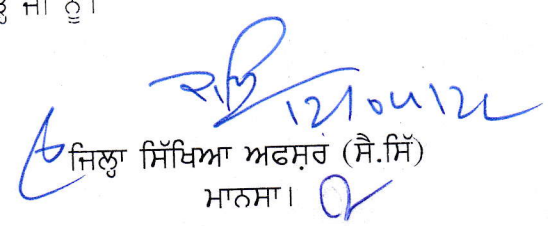 ਜੀ ਨੂੰ।
12/04/22
ਜਿਲ੍ਹਾ ਸਿੱਖਿਆ ਅਫਸ਼ਰ (ਸੈ.ਸਿੱ)
ਮਾਨਸਾ।